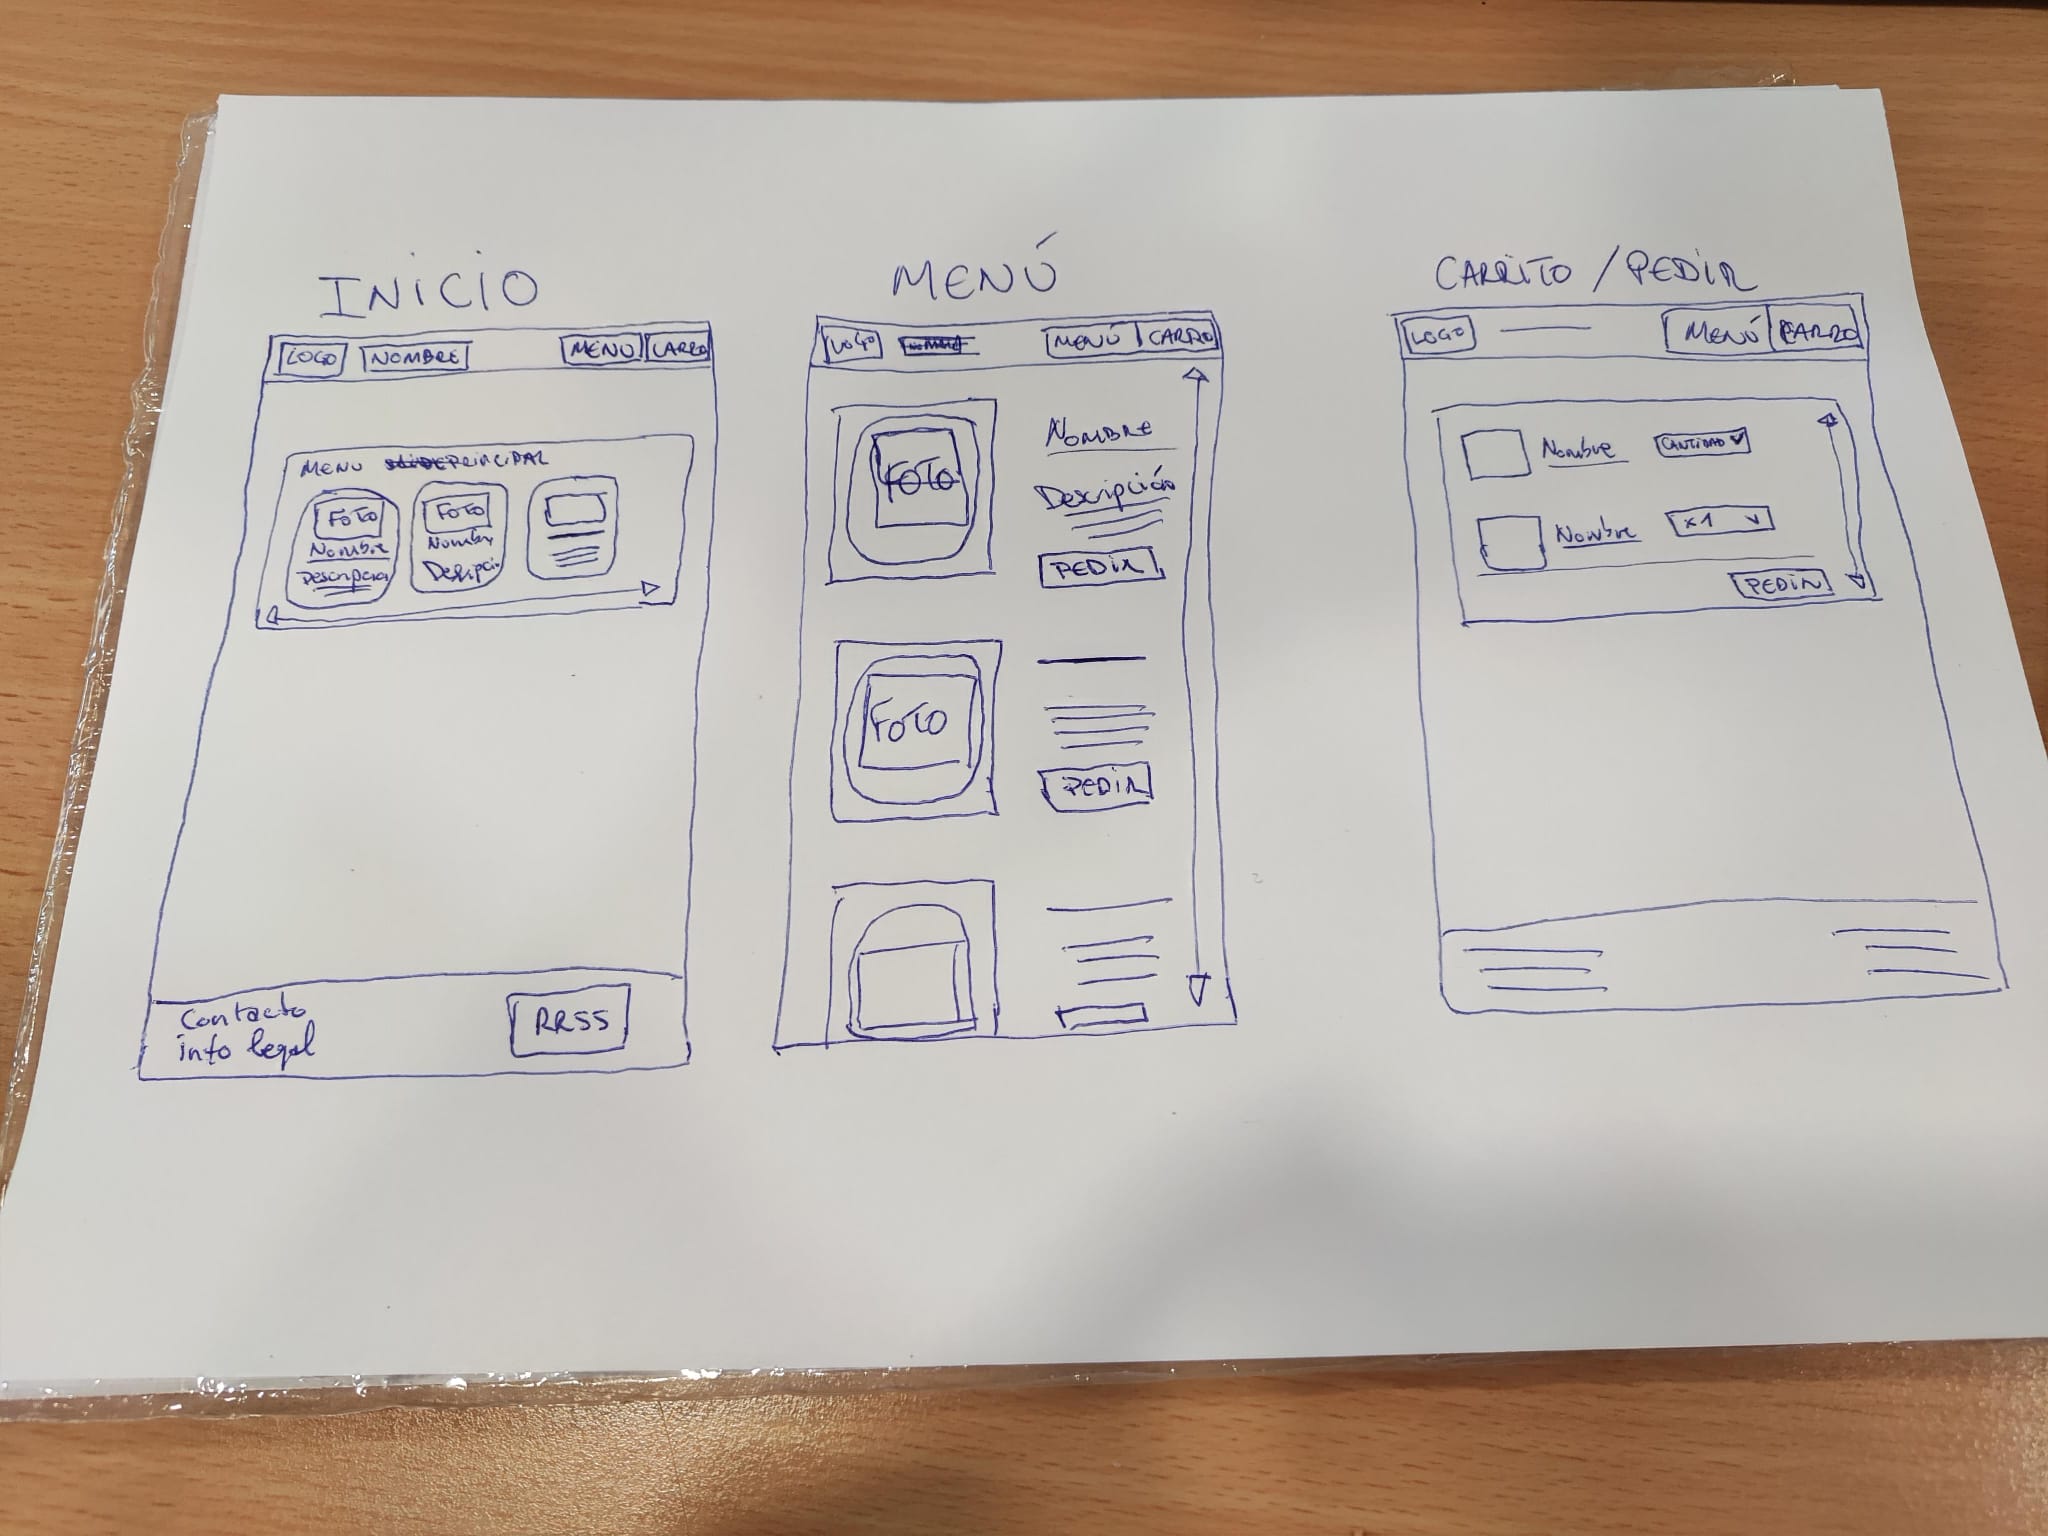 INICIO
LOGO NOMBRE MENU CARRO
MENU PRINCIPAL
FOTO
Nombre
FOTO
Nombr
Descripci
Contacto
info legal
RRSS
MENÚ
LOGO MENÚ CARRO
FOTO
NOMBRE
Descripción
PEDIR
FOTO
PEDIR
CARRITO / PEDIR
LOGO MENÚ CARRO
Nombre CANTIDAD
Nombre x1
PEDIR